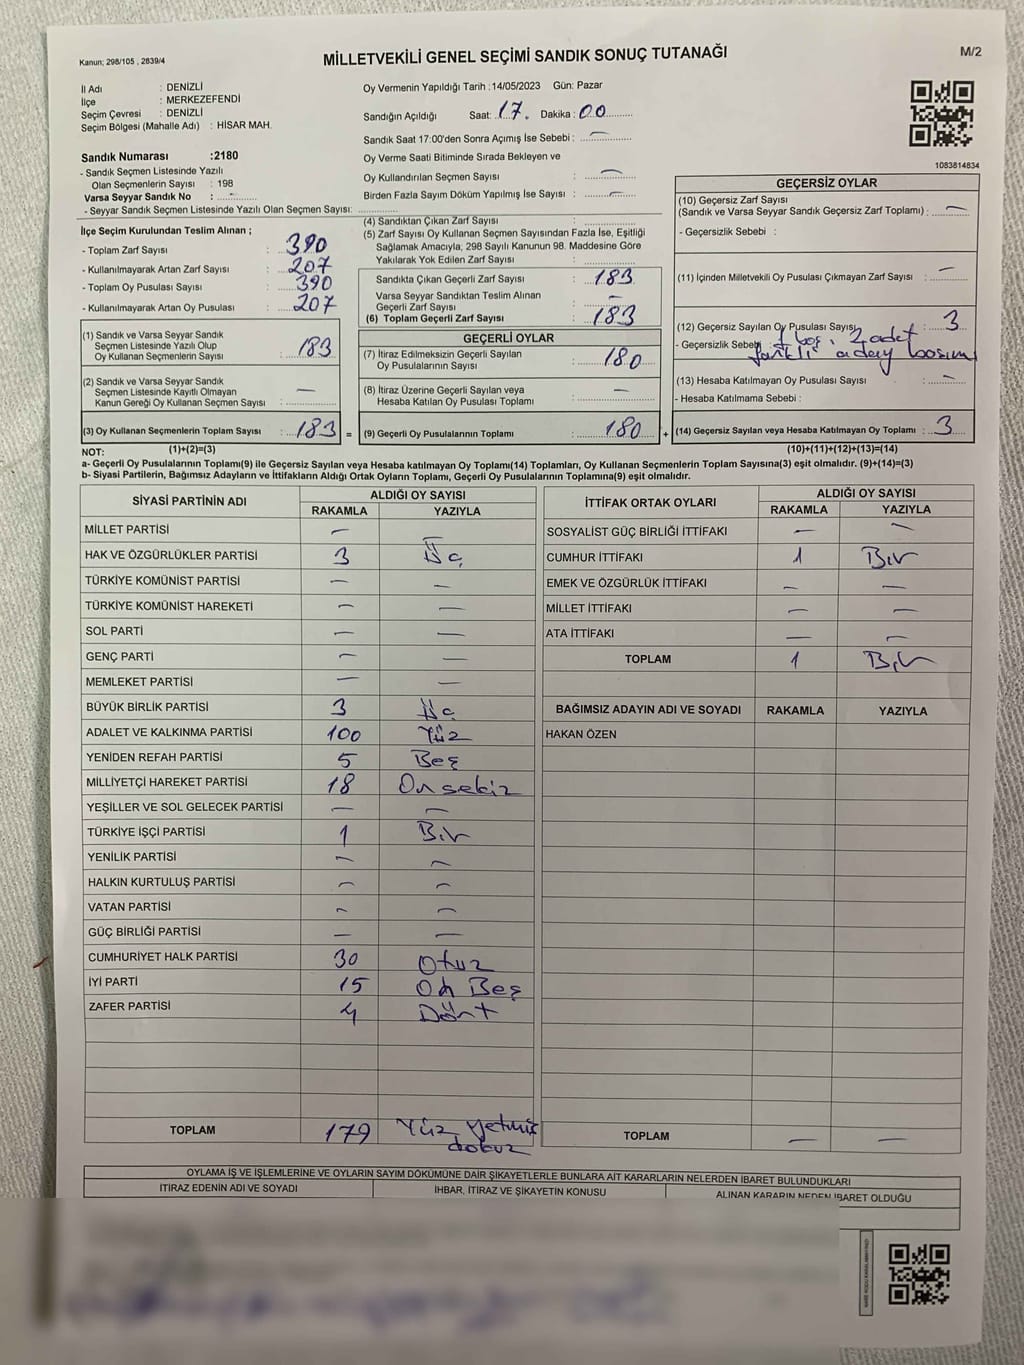 Kanun; 298/105 , 2839/4
MİLLETVEKİLİ GENEL SEÇİMİ SANDIK SONUÇ TUTANAĞI
M/2
İl Adı : DENİZLİ
İlçe : MERKEZEFENDİ
Seçim Çevresi : DENİZLİ
Seçim Bölgesi (Mahalle Adı) : HİSAR MAH.
Sandık Numarası :2180
- Sandık Seçmen Listesinde Yazılı
Olan Seçmenlerin Sayısı : 198
Varsa Seyyar Sandık No : -
- Seyyar Sandık Seçmen Listesinde Yazılı Olan Seçmen Sayısı:
Oy Vermenin Yapıldığı Tarih :14/05/2023 Gün: Pazar
Sandığın Açıldığı Saat: 17. Dakika : 00
Sandık Saat 17:00'den Sonra Açımış İse Sebebi : —
Oy Verme Saati Bitiminde Sırada Bekleyen ve
Oy Kullandırılan Seçmen Sayısı : —
Birden Fazla Sayım Döküm Yapılmış İse Sayısı : —
1083814834
İlçe Seçim Kurulundan Teslim Alınan ;
- Toplam Zarf Sayısı : 390
- Kullanılmayarak Artan Zarf Sayısı : 207
- Toplam Oy Pusulası Sayısı : 390
- Kullanılmayarak Artan Oy Pusulası : 207
(1) Sandık ve Varsa Seyyar Sandık
Seçmen Listesinde Yazılı Olup
Oy Kullanan Seçmenlerin Sayısı : 183
(2) Sandık ve Varsa Seyyar Sandık
Seçmen Listesinde Kayıtlı Olmayan
Kanun Gereği Oy Kullanan Seçmen Sayısı : —
(3) Oy Kullanan Seçmenlerin Toplam Sayısı : 183 =
(1)+(2)=(3)
(4) Sandıktan Çıkan Zarf Sayısı :
(5) Zarf Sayısı Oy Kullanan Seçmen Sayısından Fazla İse, Eşitliği
Sağlamak Amacıyla, 298 Sayılı Kanunun 98. Maddesine Göre
Yakılarak Yok Edilen Zarf Sayısı :
Sandıkta Çıkan Geçerli Zarf Sayısı : 183
Varsa Seyyar Sandıktan Teslim Alınan
Geçerli Zarf Sayısı : —
(6) Toplam Geçerli Zarf Sayısı : 183
GEÇERLİ OYLAR
(7) İtiraz Edilmeksizin Geçerli Sayılan
Oy Pusulalarının Sayısı : 180
(8) İtiraz Üzerine Geçerli Sayılan veya
Hesaba Katılan Oy Pusulası Toplamı : —
(9) Geçerli Oy Pusulalarının Toplamı : 180 +
GEÇERSİZ OYLAR
(10) Geçersiz Zarf Sayısı
(Sandık ve Varsa Seyyar Sandık Geçersiz Zarf Toplamı) : —
- Geçersizlik Sebebi :
(11) İçinden Milletvekili Oy Pusulası Çıkmayan Zarf Sayısı : —
(12) Geçersiz Sayılan Oy Pusulası Sayısı : 3
- Geçersizlik Sebebi : 1 boş, 2 adet
farklı aday basımı
(13) Hesaba Katılmayan Oy Pusulası Sayısı : —
- Hesaba Katılmama Sebebi :
(14) Geçersiz Sayılan veya Hesaba Katılmayan Oy Toplamı : 3
(10)+(11)+(12)+(13)=(14)
NOT:
a- Geçerli Oy Pusulalarının Toplamı(9) ile Geçersiz Sayılan veya Hesaba katılmayan Oy Toplamı(14) Toplamları, Oy Kullanan Seçmenlerin Toplam Sayısına(3) eşit olmalıdır. (9)+(14)=(3)
b- Siyasi Partilerin, Bağımsız Adayların ve İttifakların Aldığı Ortak Oyların Toplamı, Geçerli Oy Pusulalarının Toplamına(9) eşit olmalıdır.
SİYASİ PARTİNİN ADI ALDIĞI OY SAYISI
RAKAMLA YAZIYLA
MİLLET PARTİSİ — —
HAK VE ÖZGÜRLÜKLER PARTİSİ 3 Üç
TÜRKİYE KOMÜNİST PARTİSİ — —
TÜRKİYE KOMÜNİST HAREKETİ — —
SOL PARTİ — —
GENÇ PARTİ — —
MEMLEKET PARTİSİ — —
BÜYÜK BİRLİK PARTİSİ 3 Üç
ADALET VE KALKINMA PARTİSİ 100 Yüz
YENİDEN REFAH PARTİSİ 5 Beş
MİLLİYETÇİ HAREKET PARTİSİ 18 Onsekiz
YEŞİLLER VE SOL GELECEK PARTİSİ — —
TÜRKİYE İŞÇİ PARTİSİ 1 Bir
YENİLİK PARTİSİ — —
HALKIN KURTULUŞ PARTİSİ — —
VATAN PARTİSİ — —
GÜÇ BİRLİĞİ PARTİSİ — —
CUMHURİYET HALK PARTİSİ 30 Otuz
İYİ PARTİ 15 On Beş
ZAFER PARTİSİ 4 Dört
TOPLAM 179 Yüz Yetmiş
dokuz
İTTİFAK ORTAK OYLARI ALDIĞI OY SAYISI
RAKAMLA YAZIYLA
SOSYALİST GÜÇ BİRLİĞİ İTTİFAKI — —
CUMHUR İTTİFAKI 1 Bir
EMEK VE ÖZGÜRLÜK İTTİFAKI — —
MİLLET İTTİFAKI — —
ATA İTTİFAKI — —
TOPLAM 1 Bir
BAĞIMSIZ ADAYIN ADI VE SOYADI RAKAMLA YAZIYLA
HAKAN ÖZEN
TOPLAM — —
OYLAMA İŞ VE İŞLEMLERİNE VE OYLARIN SAYIM DÖKÜMÜNE DAİR ŞİKAYETLERLE BUNLARA AİT KARARLARIN NELERDEN İBARET BULUNDUKLARI
İTİRAZ EDENİN ADI VE SOYADI İHBAR, İTİRAZ VE ŞİKAYETİN KONUSU ALINAN KARARIN NEDEN İBARET OLDUĞU